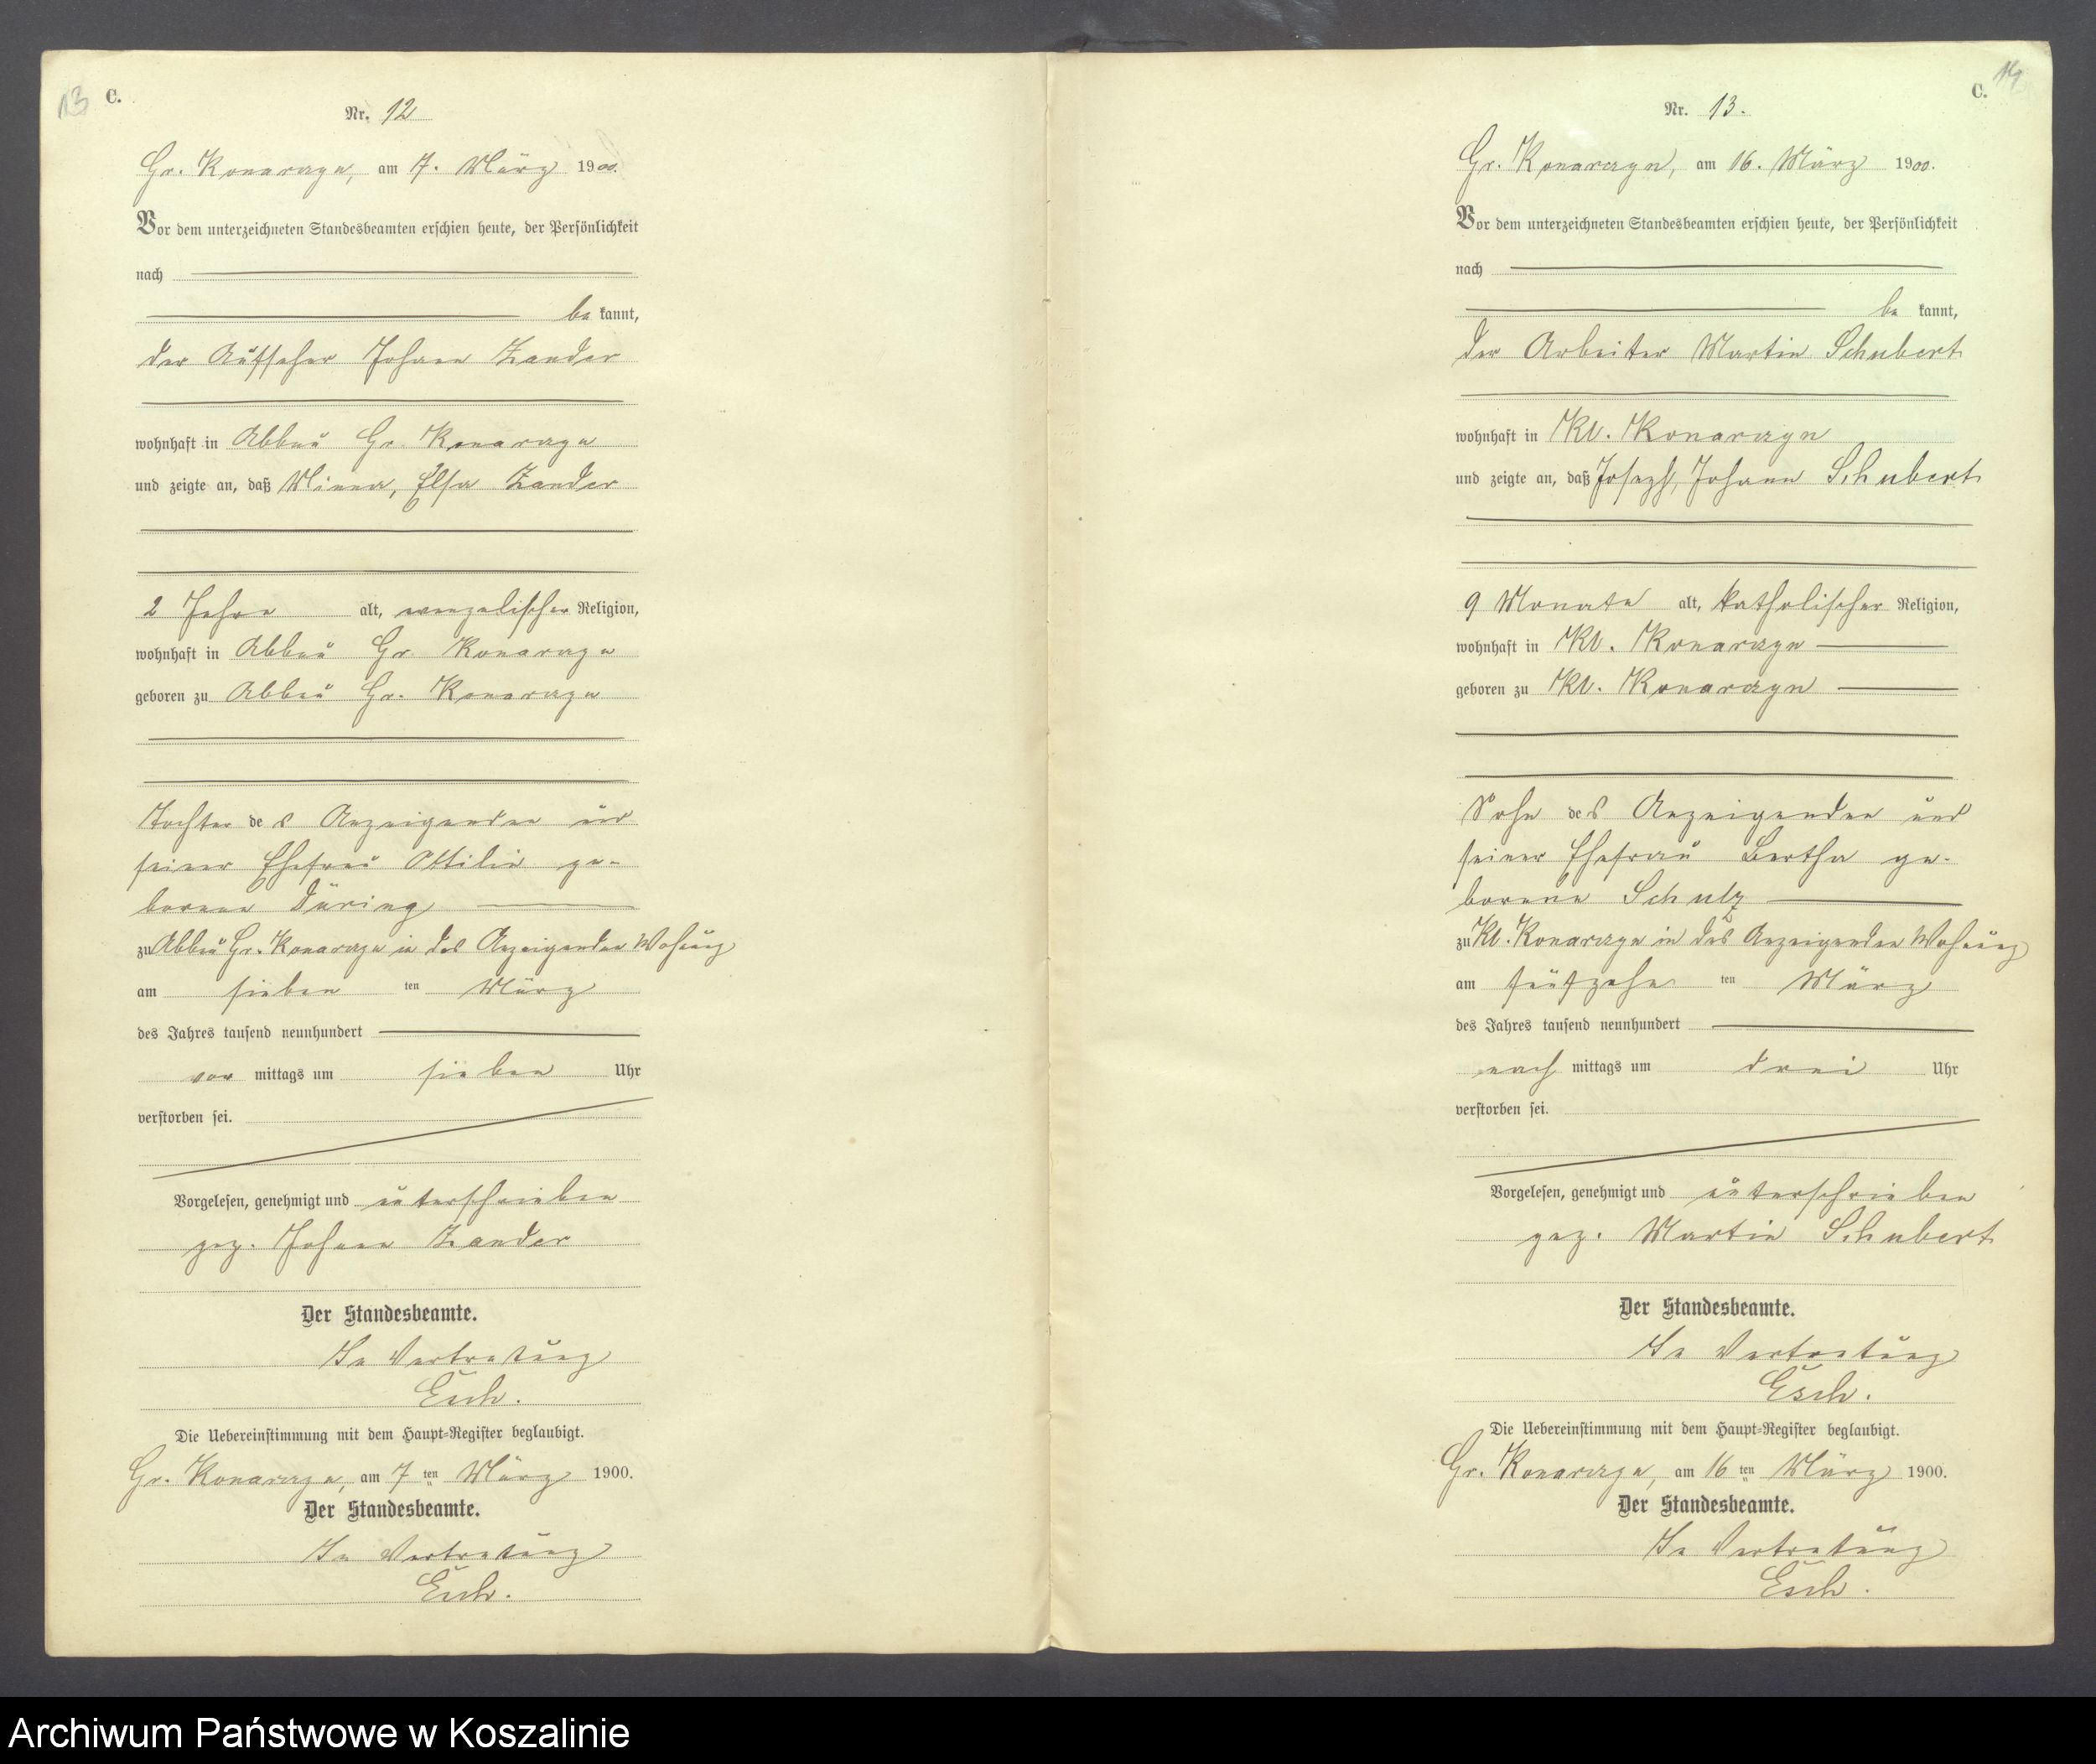 13 C.
Nr. 12
Gr. Konarczyn, am 7. März 1900.
Vor dem unterzeichneten Standesbeamten erschien heute, der Persönlichkeit
nach
be kannt,
der Aufseher Johann Zander
wohnhaft in Abbau Gr. Konarczyn
und zeigte an, daß Minna, Elsa Zander
2 Jahre alt, evangelischer Religion,
wohnhaft in Abbau Gr. Konarczyn
geboren zu Abbau Gr. Konarczyn
Tochter des Anzeigenden und
seiner Ehefrau Ottilie ge-
borene Düring
zu Abbau Gr. Konarczyn in des Anzeigenden Wohnung
am sieben ten März
des Jahres tausend neunhundert
vor mittags um sieben Uhr
verstorben sei.
Vorgelesen, genehmigt und unterschrieben
gez. Johann Zander
Der Standesbeamte.
In Vertretung
Esch.
Die Uebereinstimmung mit dem Haupt-Register beglaubigt.
Gr. Konarczyn, am 7 ten März 1900.
Der Standesbeamte.
In Vertretung
Esch.
C. 14
Nr. 13.
Gr. Konarczyn, am 16. März 1900.
Vor dem unterzeichneten Standesbeamten erschien heute, der Persönlichkeit
nach
be kannt,
der Arbeiter Martin Schubert
wohnhaft in Kl. Konarczyn
und zeigte an, daß Joseph, Johann Schubert
9 Monate alt, katholischer Religion,
wohnhaft in Kl. Konarczyn
geboren zu Kl. Konarczyn
Sohn des Anzeigenden und
seiner Ehefrau Bertha ge-
borene Schulz
zu Kl. Konarczyn in des Anzeigenden Wohnung
am fünfzehn ten März
des Jahres tausend neunhundert
nach mittags um drei Uhr
verstorben sei.
Vorgelesen, genehmigt und unterschrieben
gez. Martin Schubert
Der Standesbeamte.
In Vertretung
Esch.
Die Uebereinstimmung mit dem Haupt-Register beglaubigt.
Gr. Konarczyn, am 16 ten März 1900.
Der Standesbeamte.
In Vertretung
Esch.
Archiwum Państwowe w Koszalinie